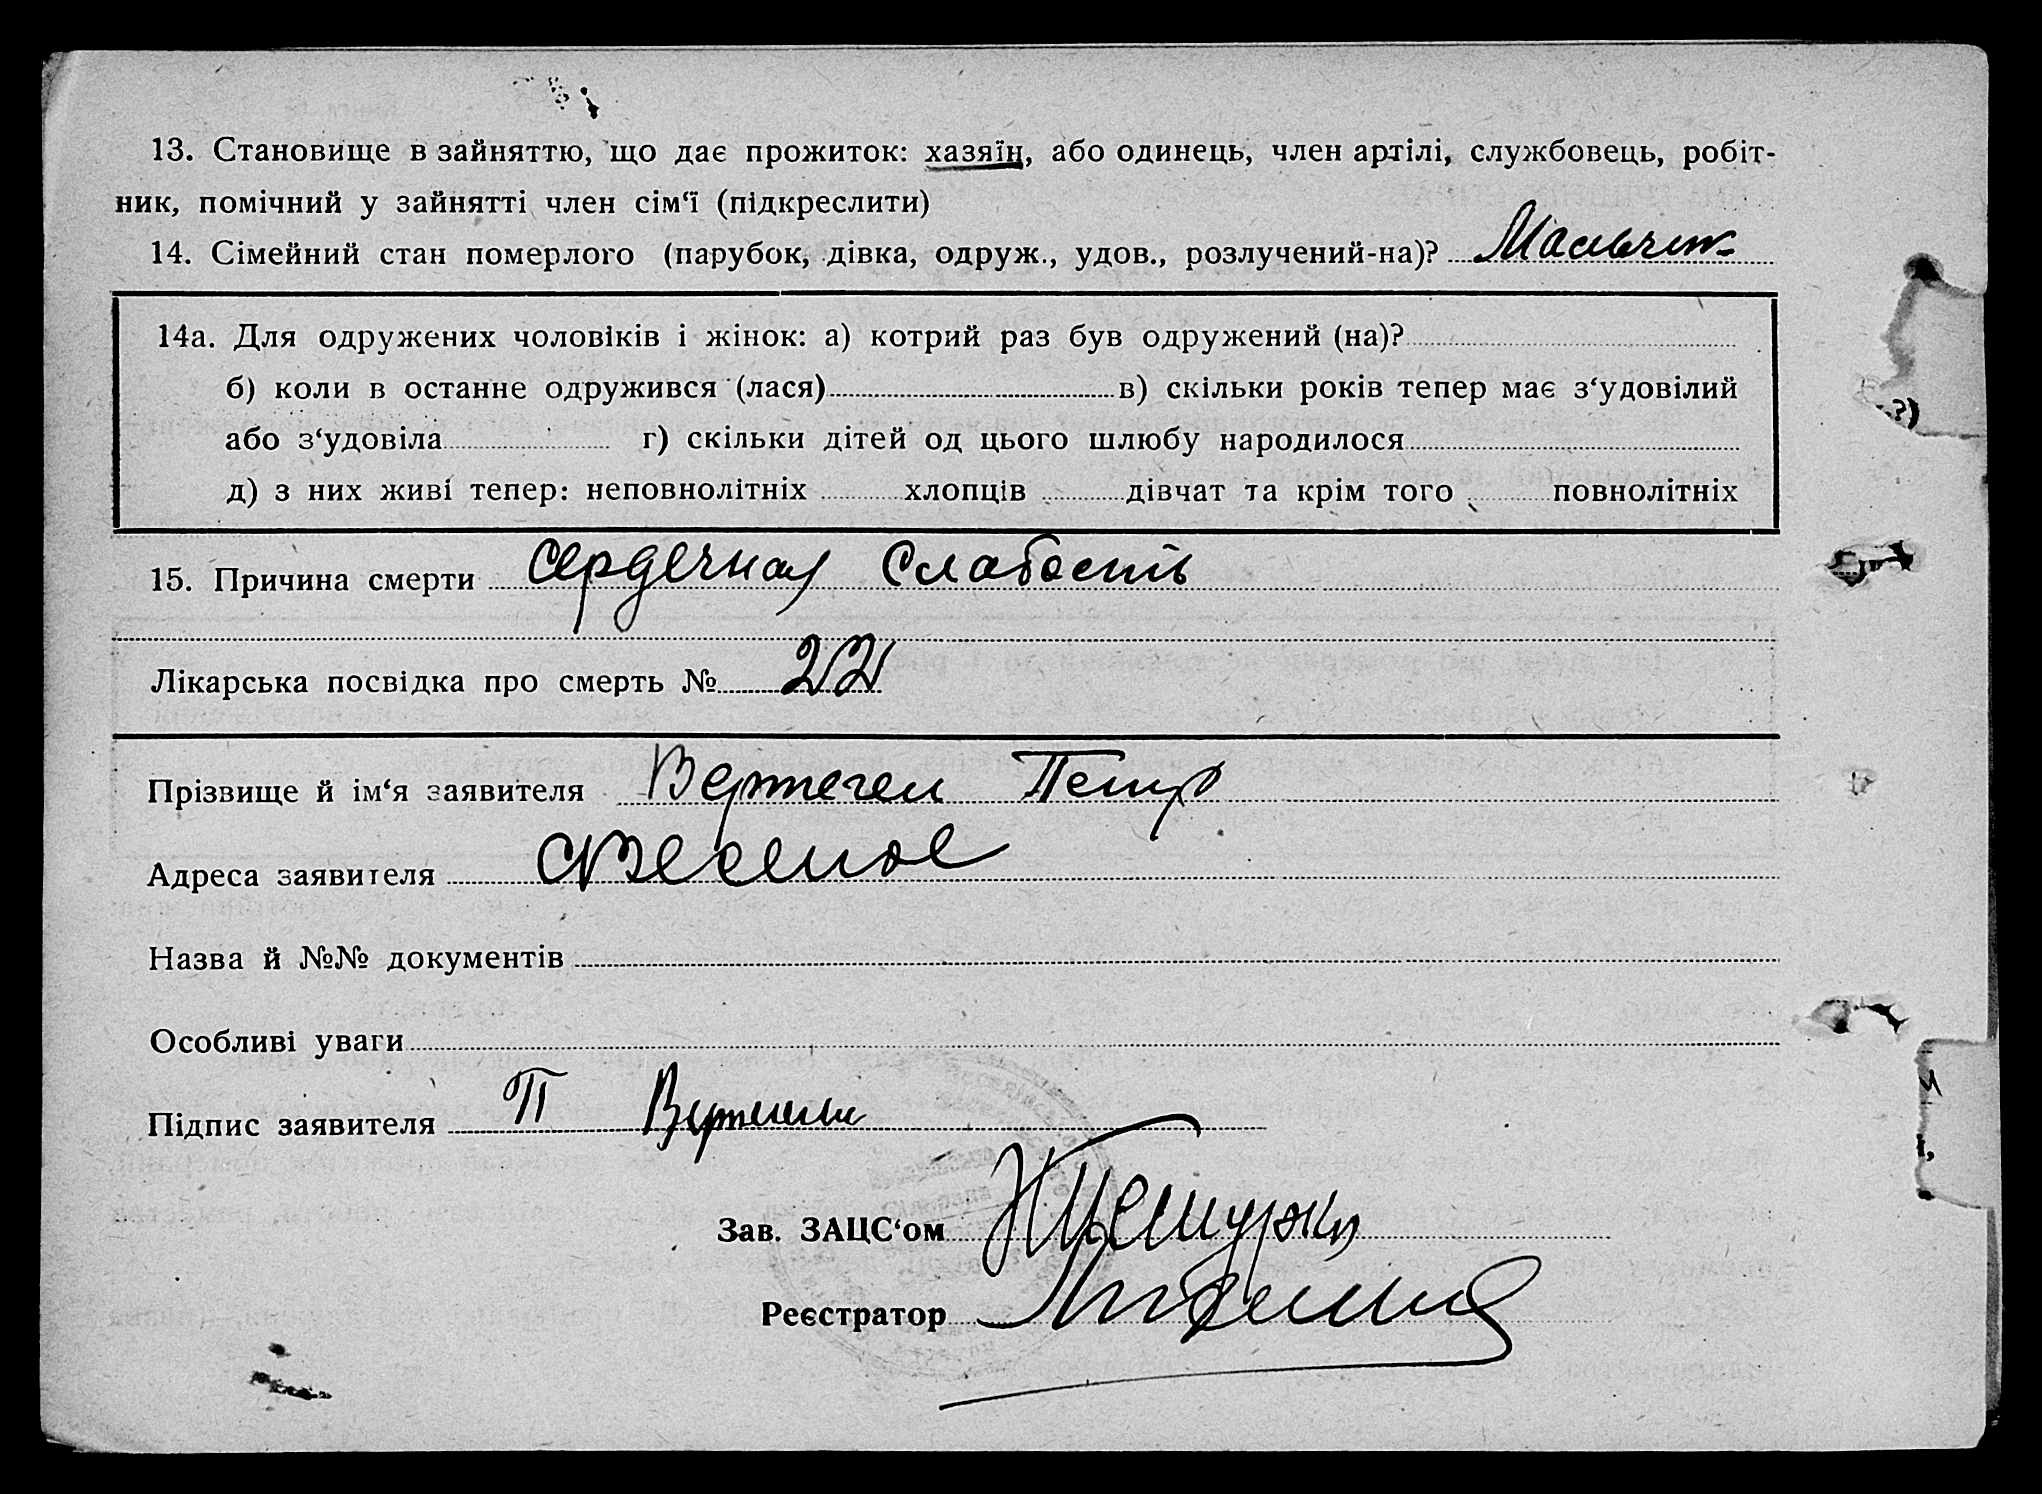 13. Становище в зайняттю, що дає прожиток: хазяїн, або одинець, член артілі, службовець, робіт-
ник, помічний у зайнятті член сім‘ї (підкреслити)
14. Сімейний стан померлого (парубок, дівка, одруж., удов., розлучений-на)? Мальчик
14а. Для одружених чоловіків і жінок: а) котрий раз був одружений (на)?
б) коли в останне одружився (лася) в) скільки років тепер має з‘удовілий
або з‘удовіла г) скільки дітей од цього шлюбу народилося
д) з них живі тепер: неповнолітніх хлопців дівчат та крім того повнолітніх
15. Причина смерти Сердечная Слабость
Лікарська посвідка про смерть №
Прізвище й ім‘я заявителя Вертегел Петр
Адреса заявителя с Веселое
Назва й №№ документів
Особливі уваги
Підпис заявителя П
Зав. ЗАЦС‘ом
Реєстратор